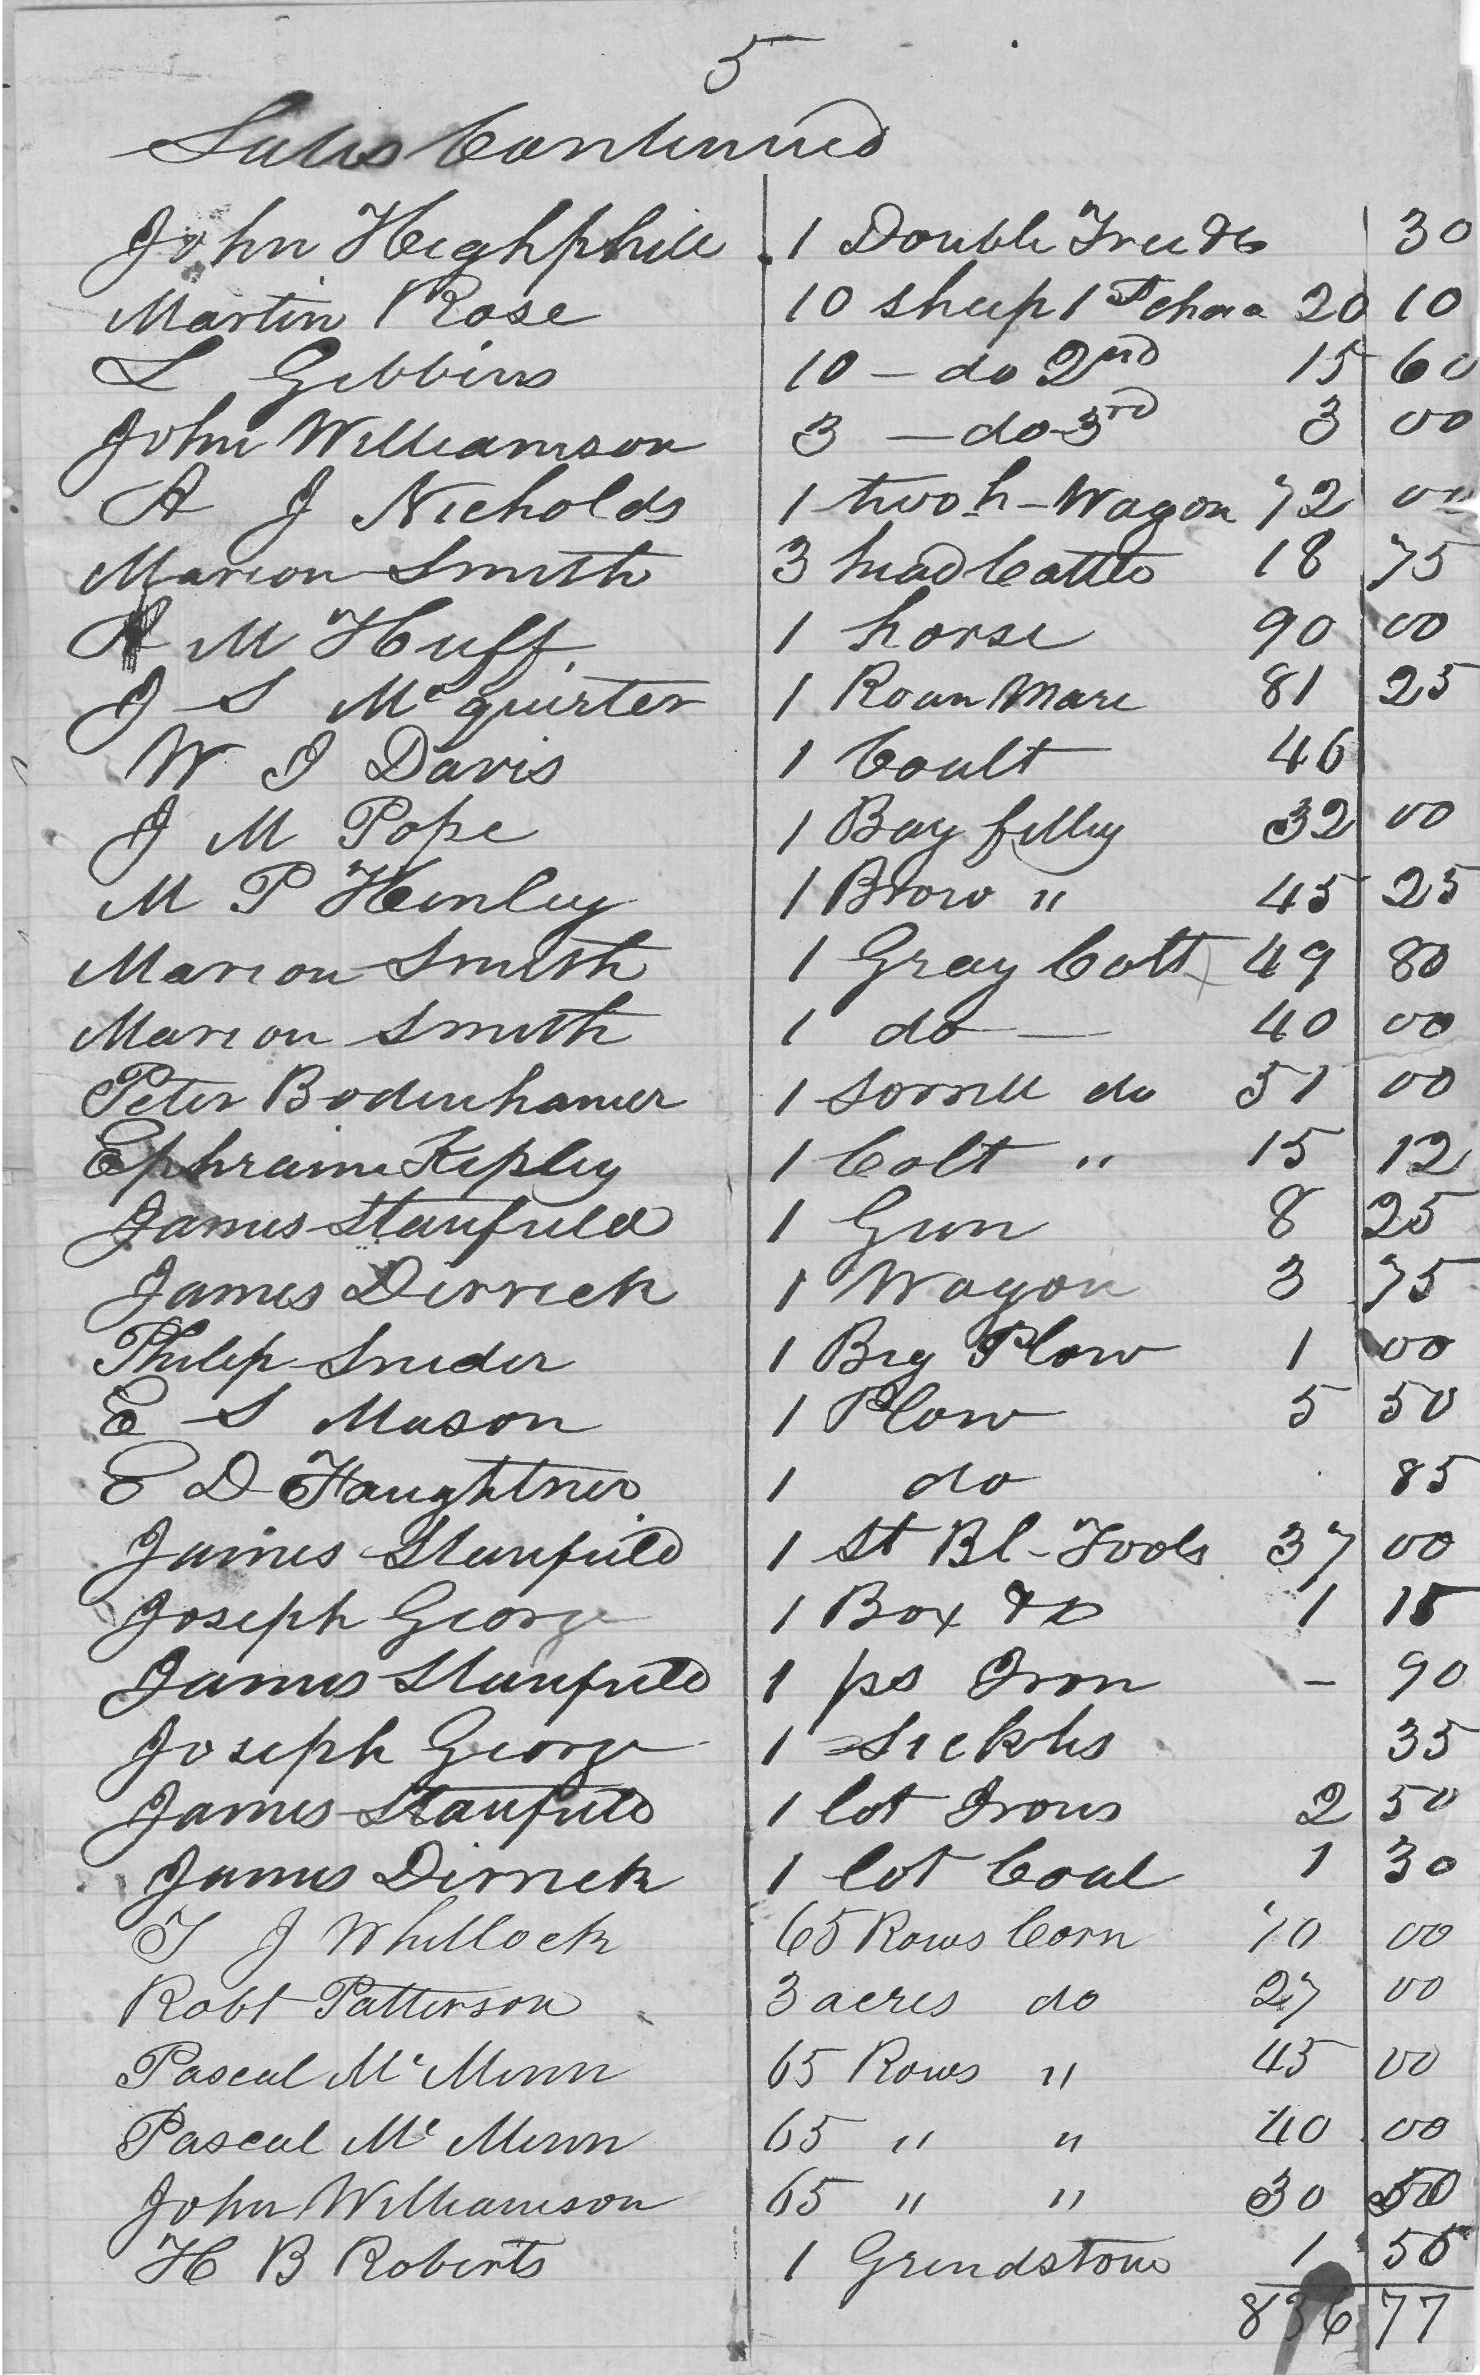 5
Sales Continued
John Heighphill 1 Double Tree &c 30
Martin Rose 10 sheep 1st choa 20 10
L Gibbins 10 - do 2nd 15 60
John Williamson 3 - do 3rd 3 00
A J Nicholds 1 two h-Wagon 72 00
Marion Smith 3 head Cattle 18 75
A M Huff 1 horse 90 00
J S McQuirter 1 Roan Mare 81 25
W J Davis 1 Coult 46
J M Pope 1 Bay filley 32 00
M P Henley 1 Brow " 45 25
Marion Smith 1 Gray Colt 49 80
Marion Smith 1 do - 40 00
Peter Bodenhamer 1 Sorrell do 51 00
Ephraim Kepley 1 Colt " 15 12
James Stanfield 1 Gun 8 25
James Derrick 1 Wagon 3 75
Philip Snider 1 Big Plow 1 00
E S Mason 1 Plow 5 50
E D 1 do 85
James Stanfield 1 St Bl-Tools 37 00
Joseph George 1 Box &c 1 15
James Stanfield 1 ps Iron - 90
Joseph George 1 Sickles 35
James Stanfield 1 lot Irons 2 50
James Dirrick 1 lot Coal 1 30
T J Whillock 65 Rows Corn 70 00
Robt Patterson 3 acres do 27 00
Pascal McMinn 65 Rows " 45 00
Pascal McMinn 65 " " 40 00
John Williamson 65 " " 30 50
H B Roberts 1 Grindstone 1 50
836 77